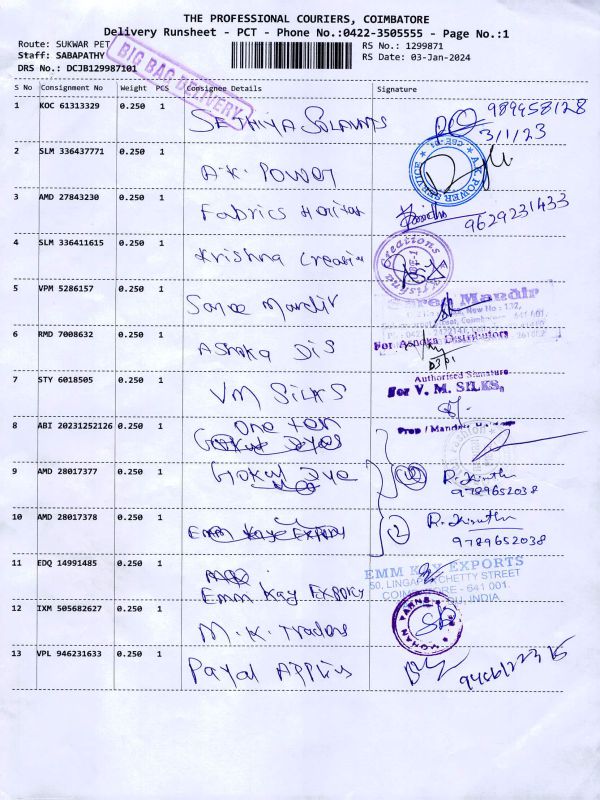 THE PROFESSIONAL COURIERS, COIMBATORE
Delivery Runsheet - PCT - Phone No.:0422-3505555 - Page No.:1
Route: SUKWAR PET
RS No.: 1299871
Staff: SABAPATHY
RS Date: 03-Jan-2024
DRS No.: DCJB129987101
BIG BAG DELIVERY
S No Consignment No Weight PCS Consignee Details Signature
1 KOC 61313329 0.250 1 SETHIYA
3/1/23
2 SLM 336437771 0.250 1 A.K. POWER
A.K. POWER SERVICE
3 AMD 27843230 0.250 1 Fabrics
9629231433
4 SLM 336411615 0.250 1 Krishna
Krishna Creations
5 VPM 5286157 0.250 1 Saree Mandir
Saree Mandir
New No : 132,
Coimbatore - 641 001.
6 RMD 7008632 0.250 1 Ashoka Dis
For Ashoka Distributors
Authorised Signature
7 STY 6018505 0.250 1 VM SILKS
For V. M. SILKS,
Prop / Mandir
8 ABI 20231252126 0.250 1 One ten
9 AMD 28017377 0.250 1 Gokul Dye
9789652038
10 AMD 28017378 0.250 1 Emm Kay Export
2
9789652038
11 EDQ 14991485 0.250 1 Emm Kay Export
EMM KAY EXPORTS
50, LINGAPPA CHETTY STREET
COIMBATORE - 641 001.
INDIA
12 IXM 505682627 0.250 1 M.K. Traders
MOHAN YARNS
13 VPL 946231633 0.250 1 Payal